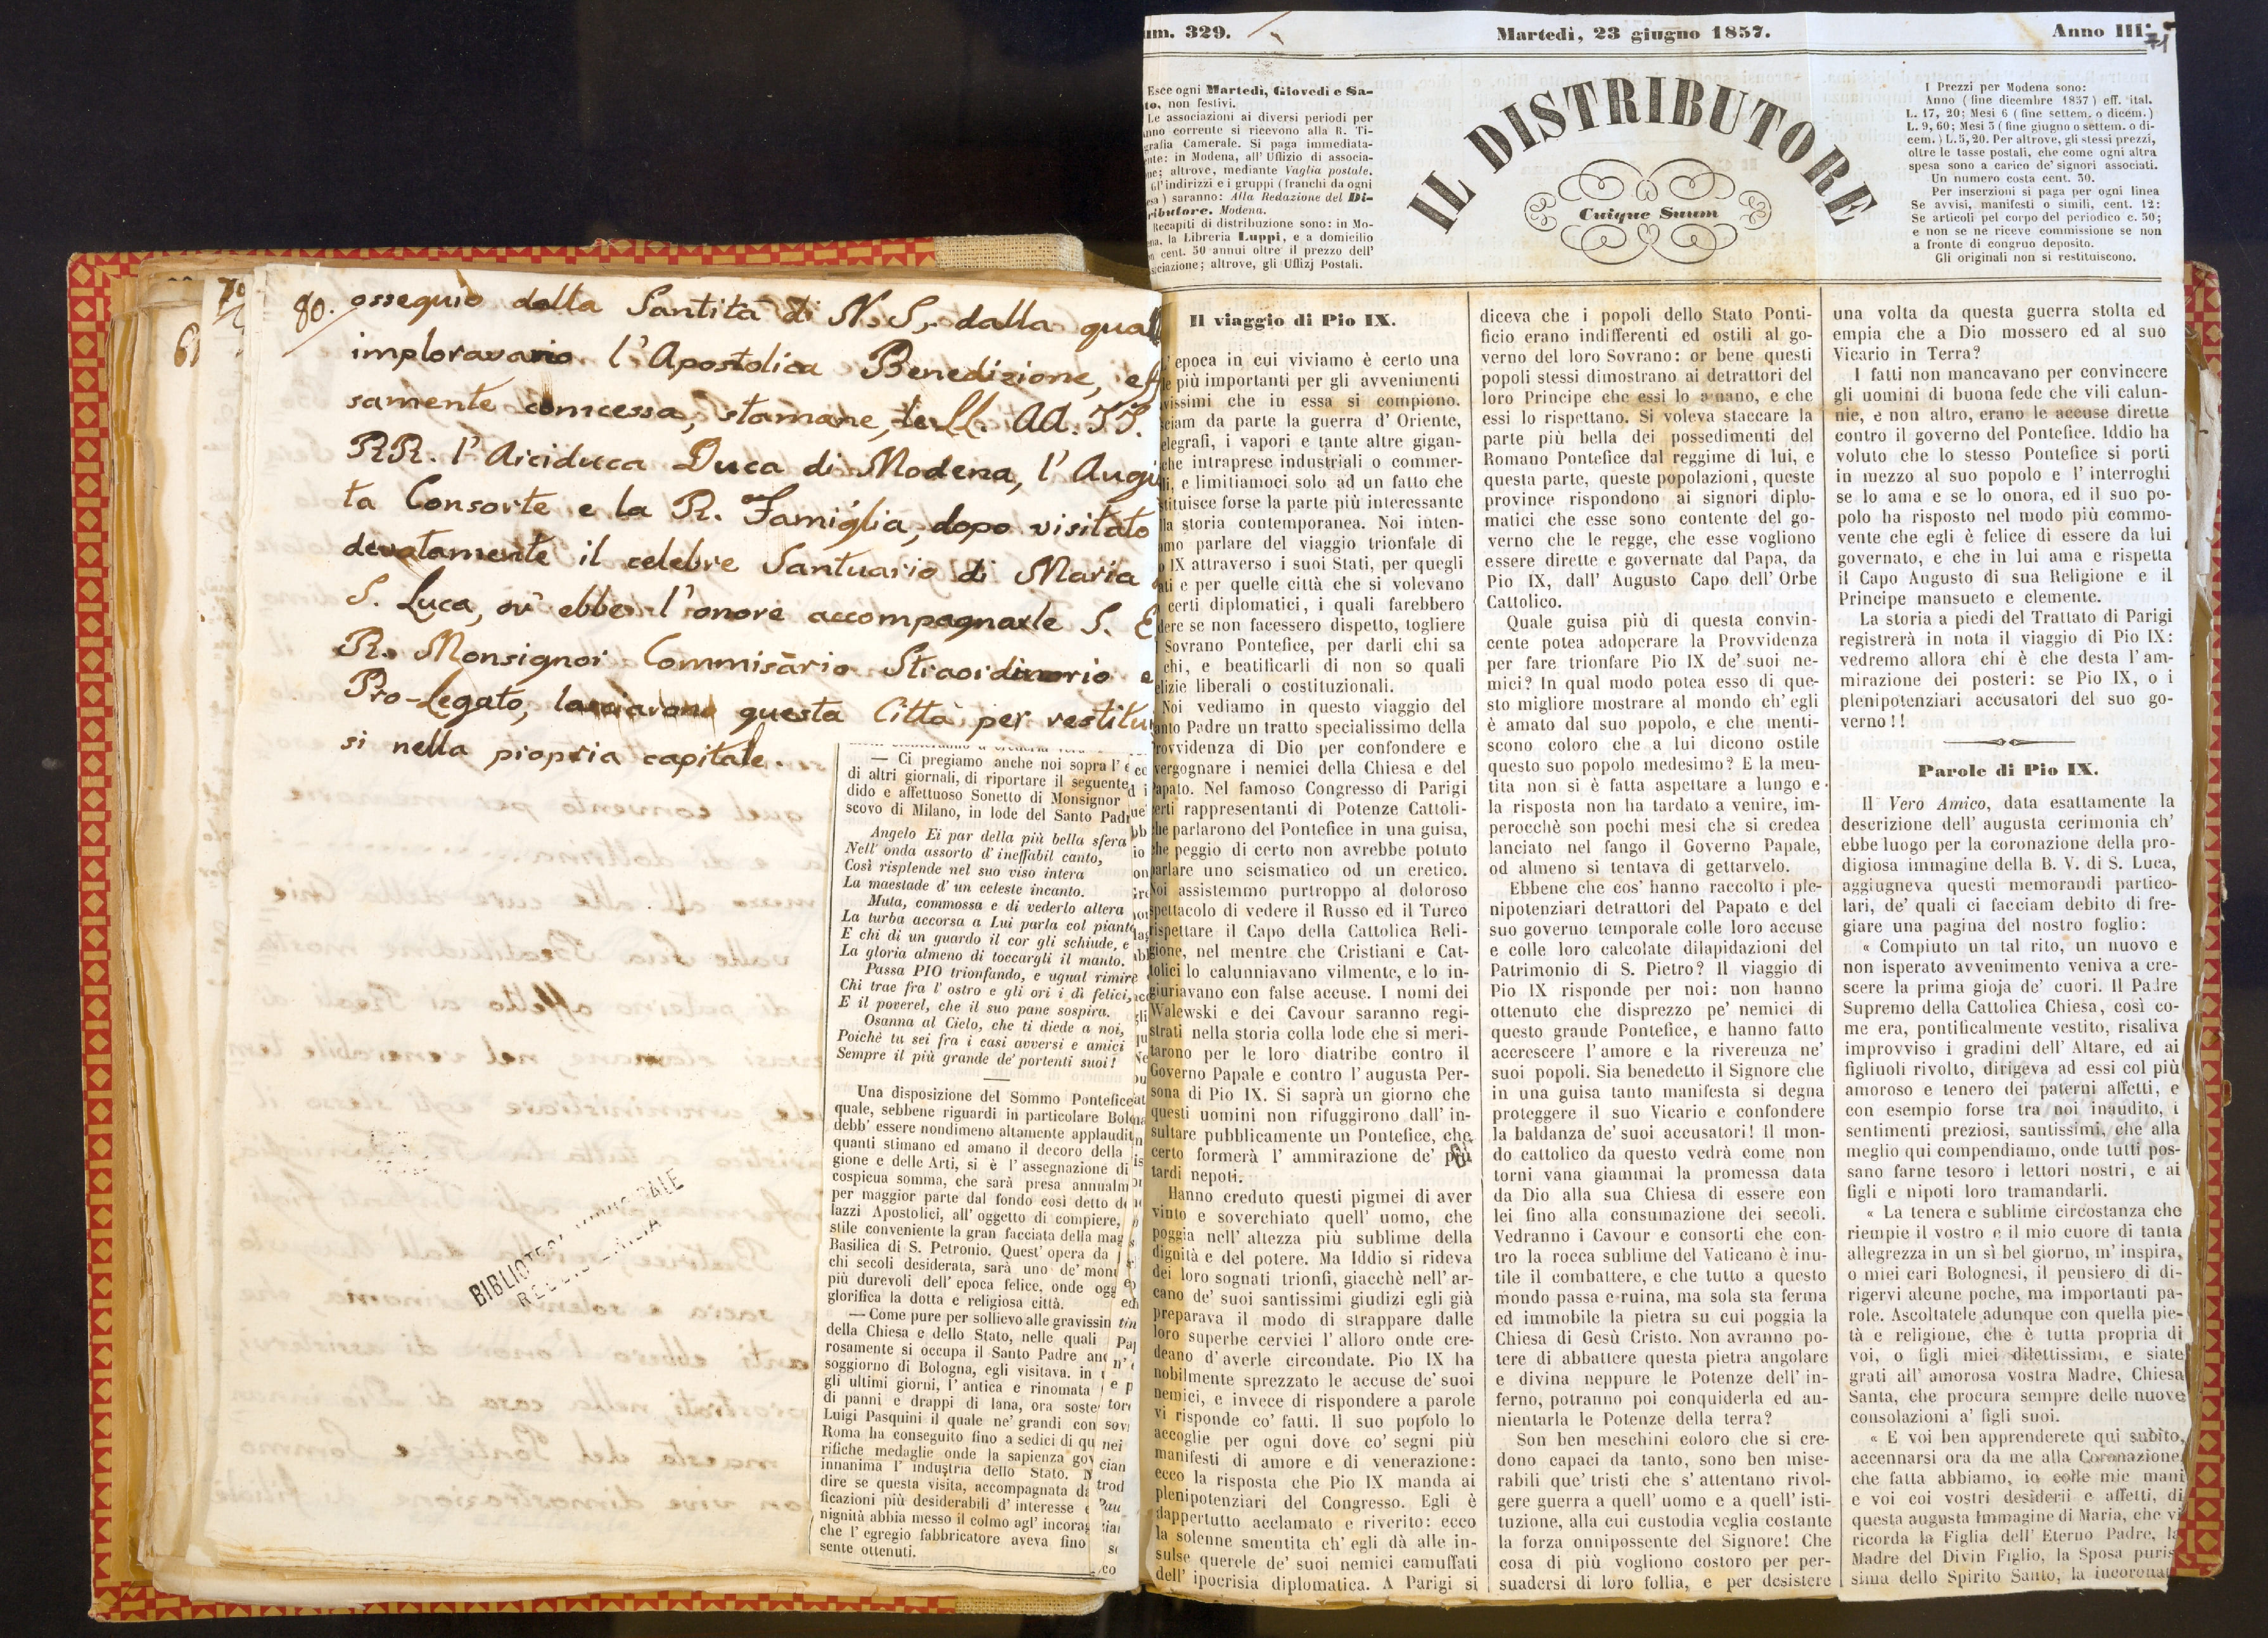 80. ossequio dalla Santità di N. S., dalla qua
imploravano l'Apostolica Benedizione, eff
samente concessa, stamane, le LL. AA. II.
RR. l'Arciduca Duca di Modena, l'Augu
ta Consorte e la R. Famiglia, dopo visitato
devotamente il celebre Santuario di Maria
S. Luca, ov' ebbe l'onore accompagnarle S. E
R. Monsignor Commissario Straordinario e
Pro-Legato, lasciarono questa Città per restitu
si nella propria capitale.
— Ci pregiamo anche noi sopra l' e
di altri giornali, di riportare il seguente
dido e affettuoso Sonetto di Monsignor
scovo di Milano, in lode del Santo Padr
Angelo Ei par della più bella sfera
Nell' onda assorto d' ineffabil canto,
Così risplende nel suo viso intera
La maestade d' un celeste incanto.
Muta, commossa e di vederlo altera
La turba accorsa a Lui parla col pianto
E chi di un guardo il cor gli schiude, e
La gloria almeno di toccargli il manto.
Passa PIO trionfando, e ugual rimire
Chi trae fra l' ostro e gli ori i dì felici,
E il poverel, che il suo pane sospira.
Osanna al Cielo, che ti diede a noi,
Poichè tu sei fra i casi avversi e amici
Sempre il più grande de' portenti suoi!
Una disposizione del Sommo Pontefice
quale, sebbene riguardi in particolare Bolo
debb' essere nondimeno altamente applaudit
quanti stimano ed amano il decoro della
gione e delle Arti, si è l' assegnazione di
cospicua somma, che sarà presa annualm
per maggior parte dal fondo così detto de
lazzi Apostolici, all' oggetto di compiere,
stile conveniente la gran facciata della mag
Basilica di S. Petronio. Quest' opera da
chi secoli desiderata, sarà uno de' mon
più durevoli dell' epoca felice, onde ogg
glorifica la dotta e religiosa città.
— Come pure per sollievo alle gravissim
della Chiesa e dello Stato, nelle quali
rosamente si occupa il Santo Padre anc
soggiorno di Bologna, egli visitava, in
gli ultimi giorni, l' antica e rinomata
di panni e drappi di lana, ora soste
Luigi Pasquini il quale ne' grandi con
Roma ha conseguito fino a sedici di qu
rifiche medaglie onde la sapienza gov
innanima l' industria dello Stato. N
dire se questa visita, accompagnata da
ficazioni più desiderabili d' interesse e
nignità abbia messo il colmo agl' incorag
che l' egregio fabbricatore aveva fino
sente ottenuti.
BIBLIOTECA MUNICIPALE
REGGIO EMILIA
um. 329.
Martedì, 23 giugno 1857.
Anno III.
71
Esce ogni Martedì, Giovedì e Sa-
to, non festivi.
Le associazioni ai diversi periodi per
anno corrente si ricevono alla R. Ti-
grafia Camerale. Si paga immediata-
nte: in Modena, all' Uffizio di associa-
ne; altrove, mediante Vaglia postale.
Gl' indirizzi e i gruppi (franchi da ogni
esa) saranno: Alla Redazione del Di-
ributore. Modena.
Recapiti di distribuzione sono: in Mo-
ena, la Libreria Luppi, e a domicilio
cent. 50 annui oltre il prezzo dell'
sociazione; altrove, gli Uffizj Postali.
IL DISTRIBUTORE
Cuique Suum
I Prezzi per Modena sono:
Anno (fine dicembre 1857) eff. ital.
L. 17, 20; Mesi 6 (fine settem. o dicem.)
L. 9, 60; Mesi 3 (fine giugno o settem. o di-
cem.) L. 5, 20. Per altrove, gli stessi prezzi,
oltre le tasse postali, che come ogni altra
spesa sono a carico de' signori associati.
Un numero costa cent. 30.
Per inserzioni si paga per ogni linea
Se avvisi, manifesti o simili, cent. 12:
Se articoli pel corpo del periodico c. 50;
e non se ne riceve commissione se non
a fronte di congruo deposito.
Gli originali non si restituiscono.
Il viaggio di Pio IX.
L' epoca in cui viviamo è certo una
le più importanti per gli avvenimenti
avissimi che in essa si compiono.
sciam da parte la guerra d' Oriente,
elegrafi, i vapori e tante altre gigan-
che intraprese industriali o commer-
li, e limitiamoci solo ad un fatto che
tituisce forse la parte più interessante
la storia contemporanea. Noi inten-
amo parlare del viaggio trionfale di
o IX attraverso i suoi Stati, per quegli
ati e per quelle città che si volevano
certi diplomatici, i quali farebbero
dere se non facessero dispetto, togliere
l Sovrano Pontefice, per darli chi sa
chi, e beatificarli di non so quali
elizie liberali o costituzionali.
Noi vediamo in questo viaggio del
anto Padre un tratto specialissimo della
rovvidenza di Dio per confondere e
vergognare i nemici della Chiesa e del
apato. Nel famoso Congresso di Parigi
erti rappresentanti di Potenze Cattoli-
che parlarono del Pontefice in una guisa,
he peggio di certo non avrebbe potuto
parlare uno scismatico od un eretico.
Noi assistemmo purtroppo al doloroso
spettacolo di vedere il Russo ed il Turco
rispettare il Capo della Cattolica Reli-
gione, nel mentre che Cristiani e Cat-
tolici lo calunniavano vilmente, e lo in-
giuriavano con false accuse. I nomi dei
Walewski e dei Cavour saranno regi-
strati nella storia colla lode che si meri-
tarono per le loro diatribe contro il
Governo Papale e contro l' augusta Per-
sona di Pio IX. Si saprà un giorno che
questi uomini non rifuggirono dall' in-
sultare pubblicamente un Pontefice, che
certo formerà l' ammirazione de' più
tardi nepoti.
Hanno creduto questi pigmei di aver
vinto e soverchiato quell' uomo, che
poggia nell' altezza più sublime della
dignità e del potere. Ma Iddio si rideva
dei loro sognati trionfi, giacchè nell' ar-
cano de' suoi santissimi giudizi egli già
preparava il modo di strappare dalle
loro superbe cervici l' alloro onde cre-
deano d' averle circondate. Pio IX ha
nobilmente sprezzato le accuse de' suoi
nemici, e invece di rispondere a parole
vi risponde co' fatti. Il suo popolo lo
accoglie per ogni dove co' segni più
manifesti di amore e di venerazione:
ecco la risposta che Pio IX manda ai
plenipotenziari del Congresso. Egli è
dappertutto acclamato e riverito: ecco
la solenne smentita ch' egli dà alle in-
sulse querele de' suoi nemici camuffati
dell' ipocrisia diplomatica. A Parigi si
diceva che i popoli dello Stato Ponti-
ficio erano indifferenti ed ostili al go-
verno del loro Sovrano: or bene questi
popoli stessi dimostrano ai detrattori del
loro Principe che essi lo amano, e che
essi lo rispettano. Si voleva staccare la
parte più bella dei possedimenti del
Romano Pontefice dal reggime di lui, e
questa parte, queste popolazioni, queste
province rispondono ai signori diplo-
matici che esse sono contente del go-
verno che le regge, che esse vogliono
essere dirette e governate dal Papa, da
Pio IX, dall' Augusto Capo dell' Orbe
Cattolico.
Quale guisa più di questa convin-
cente potea adoperare la Provvidenza
per fare trionfare Pio IX de' suoi ne-
mici? In qual modo potea esso di que-
sto migliore mostrare al mondo ch' egli
è amato dal suo popolo, e che menti-
scono coloro che a lui dicono ostile
questo suo popolo medesimo? E la men-
tita non si è fatta aspettare a lungo e
la risposta non ha tardato a venire, im-
perocchè son pochi mesi che si credea
lanciato nel fango il Governo Papale,
od almeno si tentava di gettarvelo.
Ebbene che cos' hanno raccolto i ple-
nipotenziari detrattori del Papato e del
suo governo temporale colle loro accuse
e colle loro calcolate dilapidazioni del
Patrimonio di S. Pietro? Il viaggio di
Pio IX risponde per noi: non hanno
ottenuto che disprezzo pe' nemici di
questo grande Pontefice, e hanno fatto
accrescere l' amore e la riverenza ne'
suoi popoli. Sia benedetto il Signore che
in una guisa tanto manifesta si degna
proteggere il suo Vicario e confondere
la baldanza de' suoi accusatori! Il mon-
do cattolico da questo vedrà come non
torni vana giammai la promessa data
da Dio alla sua Chiesa di essere con
lei fino alla consumazione dei secoli.
Vedranno i Cavour e consorti che con-
tro la rocca sublime del Vaticano è inu-
tile il combattere, e che tutto a questo
mondo passa e ruina, ma sola sta ferma
ed immobile la pietra su cui poggia la
Chiesa di Gesù Cristo. Non avranno po-
tere di abbattere questa pietra angolare
e divina neppure le Potenze dell' in-
ferno, potranno poi conquiderla ed an-
nientarla le Potenze della terra?
Son ben meschini coloro che si cre-
dono capaci da tanto, sono ben mise-
rabili que' tristi che s' attentano rivol-
gere guerra a quell' uomo e a quell' isti-
tuzione, alla cui custodia veglia costante
la forza onnipossente del Signore! Che
cosa di più vogliono costoro per per-
suadersi di loro follia, e per desistere
una volta da questa guerra stolta ed
empia che a Dio mossero ed al suo
Vicario in Terra?
I fatti non mancavano per convincere
gli uomini di buona fede che vili calun-
nie, e non altro, erano le accuse dirette
contro il governo del Pontefice. Iddio ha
voluto che lo stesso Pontefice si porti
in mezzo al suo popolo e l' interroghi
se lo ama e se lo onora, ed il suo po-
polo ha risposto nel modo più commo-
vente che egli è felice di essere da lui
governato, e che in lui ama e rispetta
il Capo Augusto di sua Religione e il
Principe mansueto e clemente.
La storia a piedi del Trattato di Parigi
registrerà in nota il viaggio di Pio IX:
vedremo allora chi è che desta l' am-
mirazione dei posteri: se Pio IX, o i
plenipotenziari accusatori del suo go-
verno!!
Parole di Pio IX.
Il Vero Amico, data esattamente la
descrizione dell' augusta cerimonia ch'
ebbe luogo per la coronazione della pro-
digiosa immagine della B. V. di S. Luca,
aggiugneva questi memorandi partico-
lari, de' quali ci facciam debito di fre-
giare una pagina del nostro foglio:
« Compiuto un tal rito, un nuovo e
non isperato avvenimento veniva a cre-
scere la prima gioja de' cuori. Il Padre
Supremo della Cattolica Chiesa, così co-
me era, pontificalmente vestito, risaliva
improvviso i gradini dell' Altare, ed ai
figliuoli rivolto, dirigeva ad essi col più
amoroso e tenero dei paterni affetti, e
con esempio forse tra noi inaudito, i
sentimenti preziosi, santissimi, che alla
meglio qui compendiamo, onde tutti pos-
sano farne tesoro i lettori nostri, e ai
figli e nipoti loro tramandarli.
« La tenera e sublime circostanza che
riempie il vostro e il mio cuore di tanta
allegrezza in un sì bel giorno, m' inspira,
o miei cari Bolognesi, il pensiero di di-
rigervi alcune poche, ma importanti pa-
role. Ascoltatele adunque con quella pie-
tà e religione, che è tutta propria di
voi, o figli miei dilettissimi, e siate
grati all' amorosa vostra Madre, Chiesa
Santa, che procura sempre delle nuove
consolazioni a' figli suoi.
« E voi ben apprenderete qui subito,
accennarsi ora da me alla Coronazione,
che fatta abbiamo, io colle mie mani
e voi coi vostri desiderii e affetti, di
questa augusta Immagine di Maria, che vi
ricorda la Figlia dell' Eterno Padre, la
Madre del Divin Figlio, la Sposa puris
sima dello Spirito Santo, la incoronat